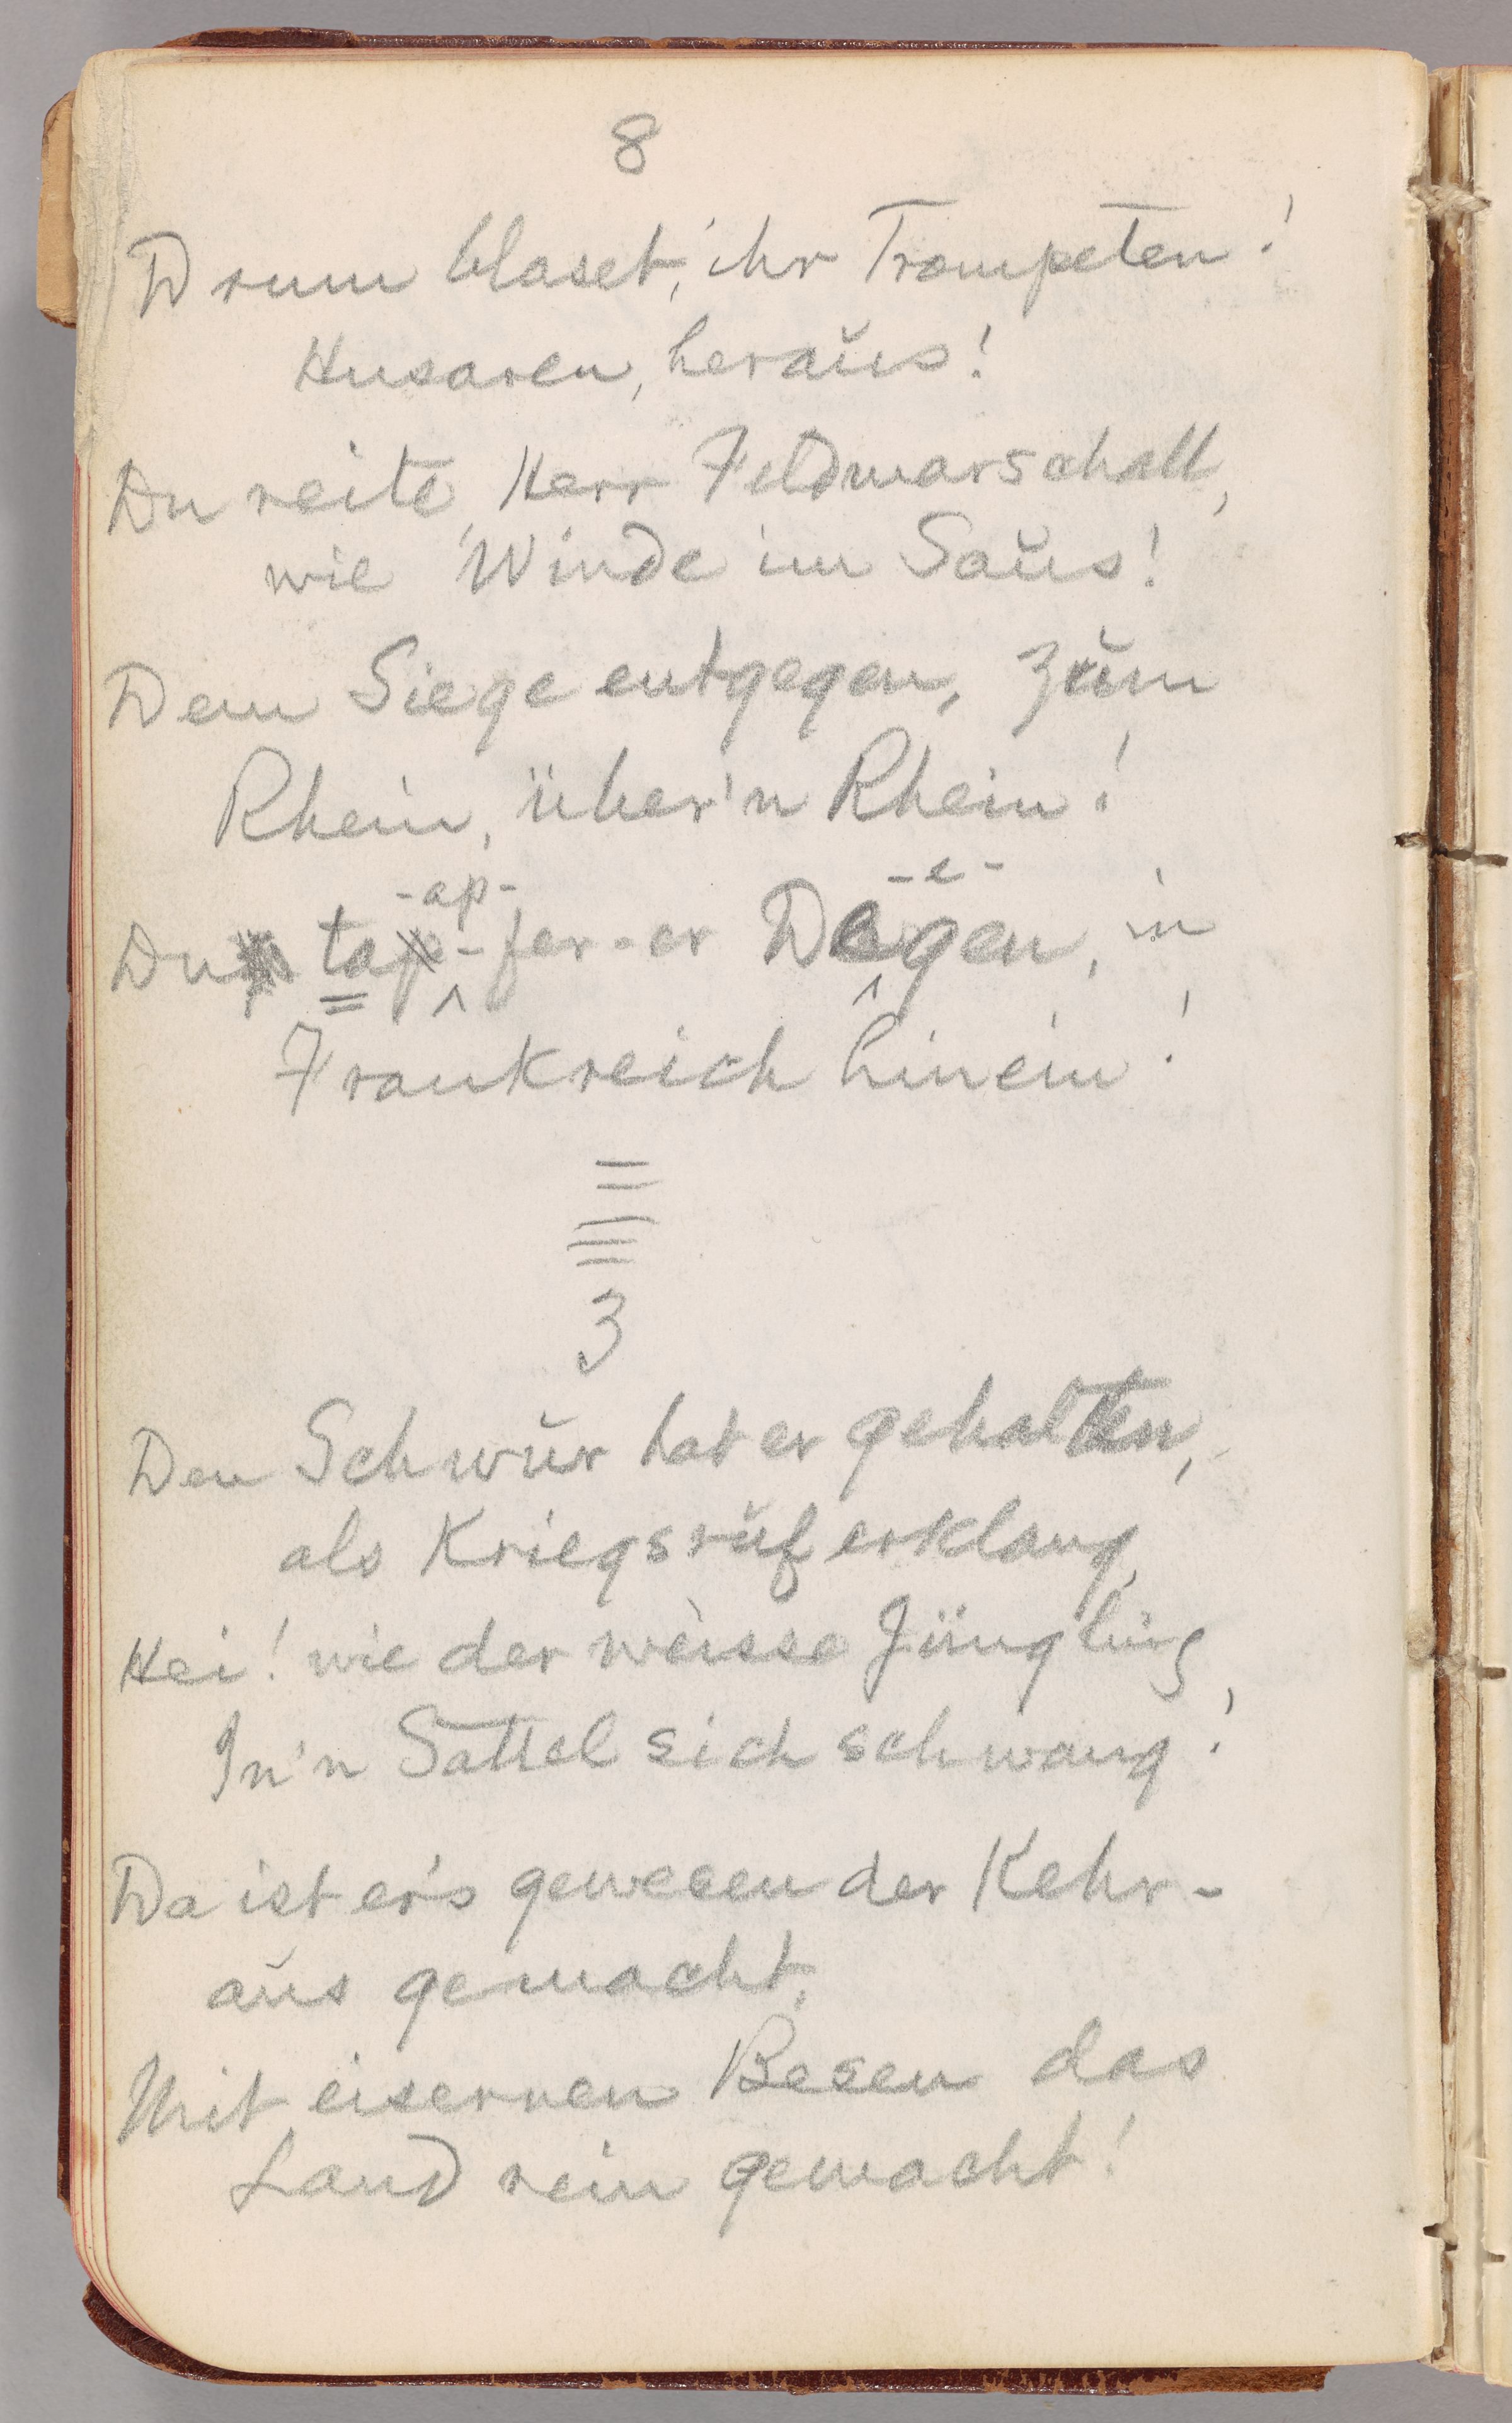 8
Drum blaset, ihr Trompeten!
Husaren, heraŭs!
Du reite, Herr Feldmarschall,
wie Winde im Saŭs!
Dem Siege entgegen, zŭm
Rhein, über'n Rhein!
-ap- -e-
Du tap-fer-er Degen, in
Frankreich hinein!
3
Den Schwŭr hat er gehalten,
als Kriegsrŭf erklang,
Hei! wie der weisse Jüngling,
In'n Sattel sich schwang!
Da ist er's gewesen der Kehr-
aŭs gemacht,
Mit eisernen Besen das
Land rein gemacht!